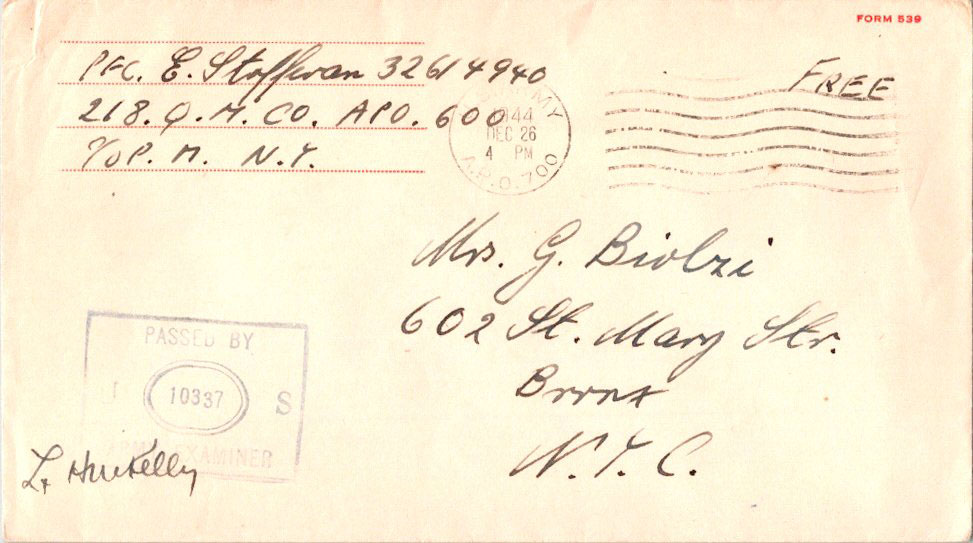 FORM 539
PFC. E. Stofferan 32614940
FREE
218. Q. M. CO. APO. 600
℅ P. M. N.Y.
ARMY
1944
DEC 26
4 PM
A.P.O. 700
Mrs. G. Biolzi
602 St. Mary Str.
Bronx
N.Y.C.
PASSED BY
U 10337 S
ARMY EXAMINER